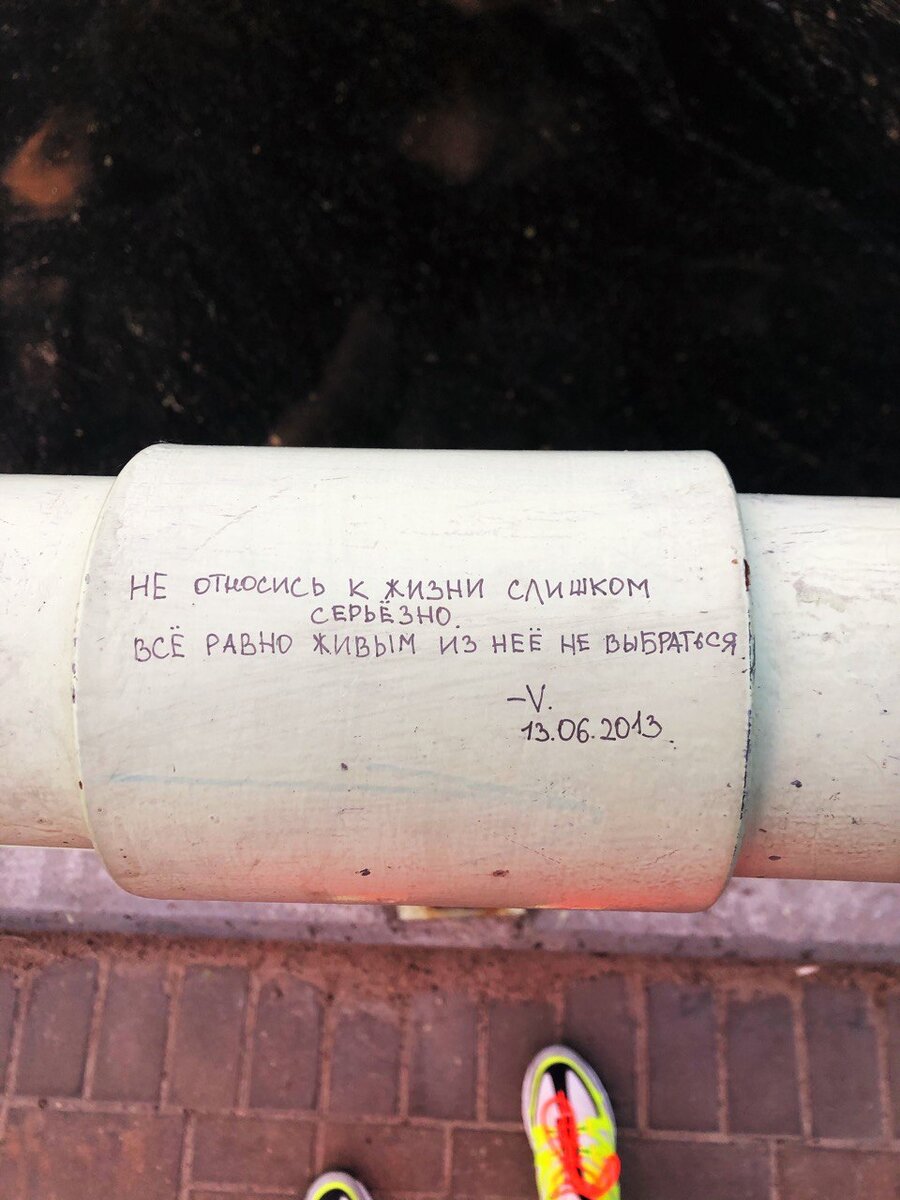 НЕ ОТНОСИСЬ К ЖИЗНИ СЛИШКОМ
СЕРЬЁЗНО.
ВСЁ РАВНО ЖИВЫМ ИЗ НЕЁ НЕ ВЫБРАТЬСЯ
–V.
13.06.2013.